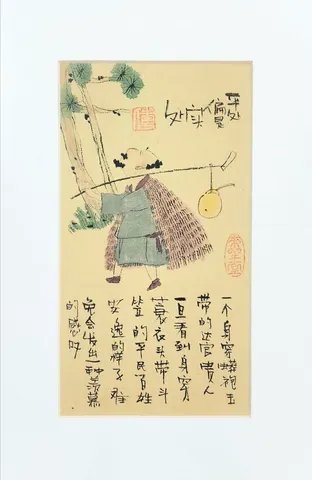 平处
是
实
处
一个身穿蟒袍玉
带的达官贵人
一旦看到身穿
蓑衣头带斗
笠的平民百姓
安逸的样子难
免会发出一种羡慕
的感叹